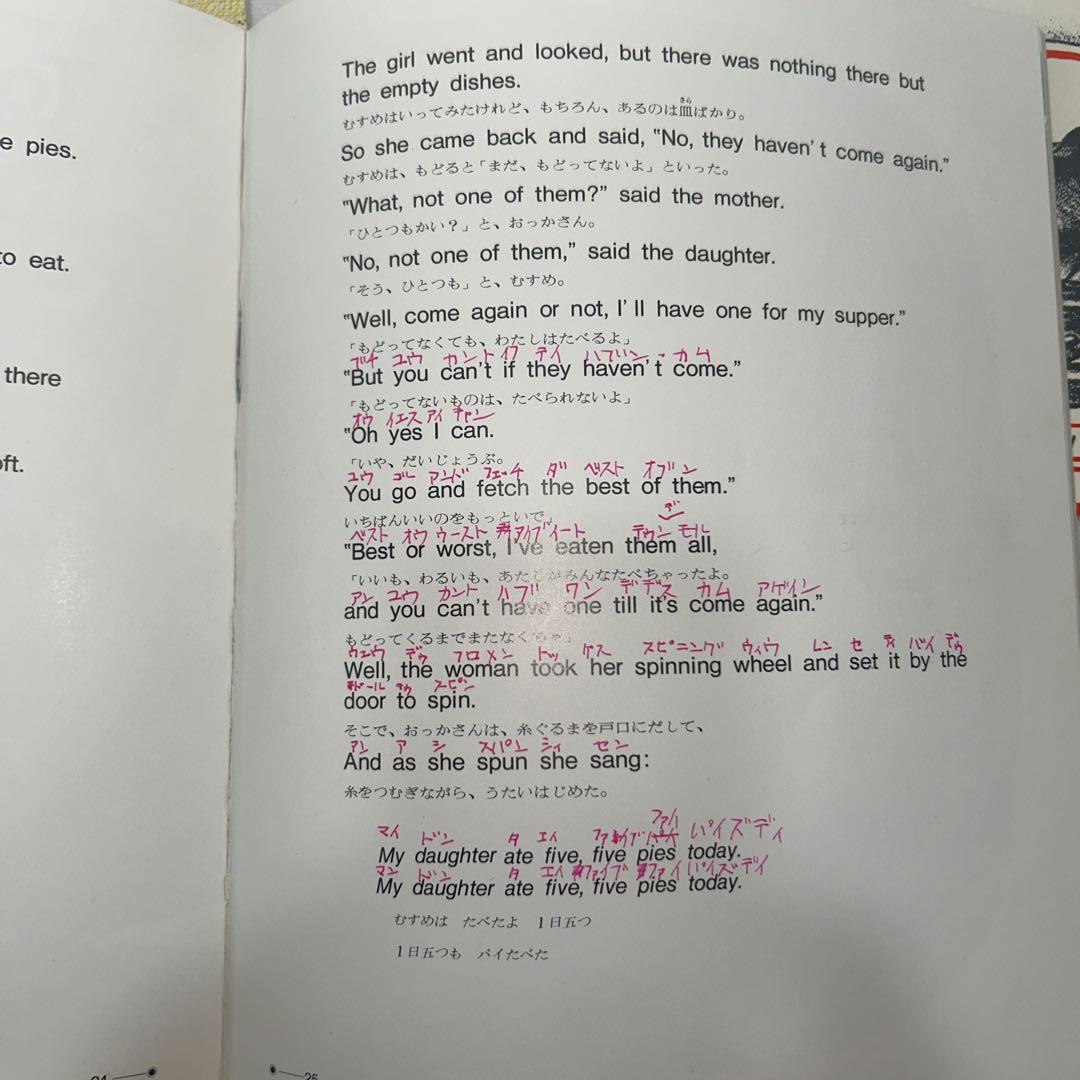 e pies.
to eat.
there
oft.
The girl went and looked, but there was nothing there but
the empty dishes.
むすめはいってみたけれど、もちろん、あるのは皿ばかり。
So she came back and said, “No, they haven't come again.”
むすめは、もどると「まだ、もどってないよ」といった。
“What, not one of them?” said the mother.
「ひとつもかい？」と、おっかさん。
“No, not one of them,” said the daughter.
「そう、ひとつも」と、むすめ。
“Well, come again or not, I'll have one for my supper.”
「もどってなくても、わたしはたべるよ」
ユウ カント イフ ゼイ ハブン カム
“But you can't if they haven't come.”
「もどってないものは、たべられないよ」
オウ イエス アイ キャン
“Oh yes I can.
「いや、だいじょうぶ。
ユウ ゴー アンド フェッチ ダ ベスト オブン
You go and fetch the best of them.”
いちばんいいのをもっといで」
ベスト オウ ウースト アイブ イート デウン モル
“Best or worst, I've eaten them all,
「いいも、わるいも、あたしがみんなたべちゃったよ。
アン ユウ カント ハブ ワン カム アゲイン
and you can't have one till it's come again.”
もどってくるまでまたなくちゃ」
ウェウ デゥ スピニング ウィウ レン セ ティ バイ デゥ
Well, the woman took her spinning wheel and set it by the
スピン
door to spin.
そこで、おっかさんは、糸ぐるまを戸口にだして、
アン ア シ スパン シィ セン
And as she spun she sang:
糸をつむぎながら、うたいはじめた。
マイ ドン タ エイ ファイ パイズディ
My daughter ate five, five pies today.
マン ドン タ エイ ファイブ ファイ パイズディ
My daughter ate five, five pies today.
むすめは たべたよ 1日五つ
1日五つも パイたべた
24
25